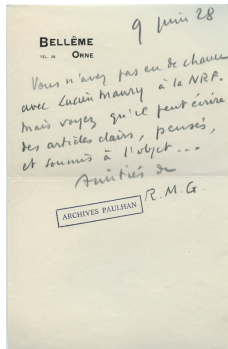 9 juin 28
BELLÊME
TÉL. 28 ORNE
Vous n'avez pas eu de chance
avec Lucien Maury à la NRF.
Mais voyez qu'il peut écrire
des articles clairs, pensés,
et soumis à l'objet...
Amitiés de
R.M.G.
ARCHIVES PAULHAN